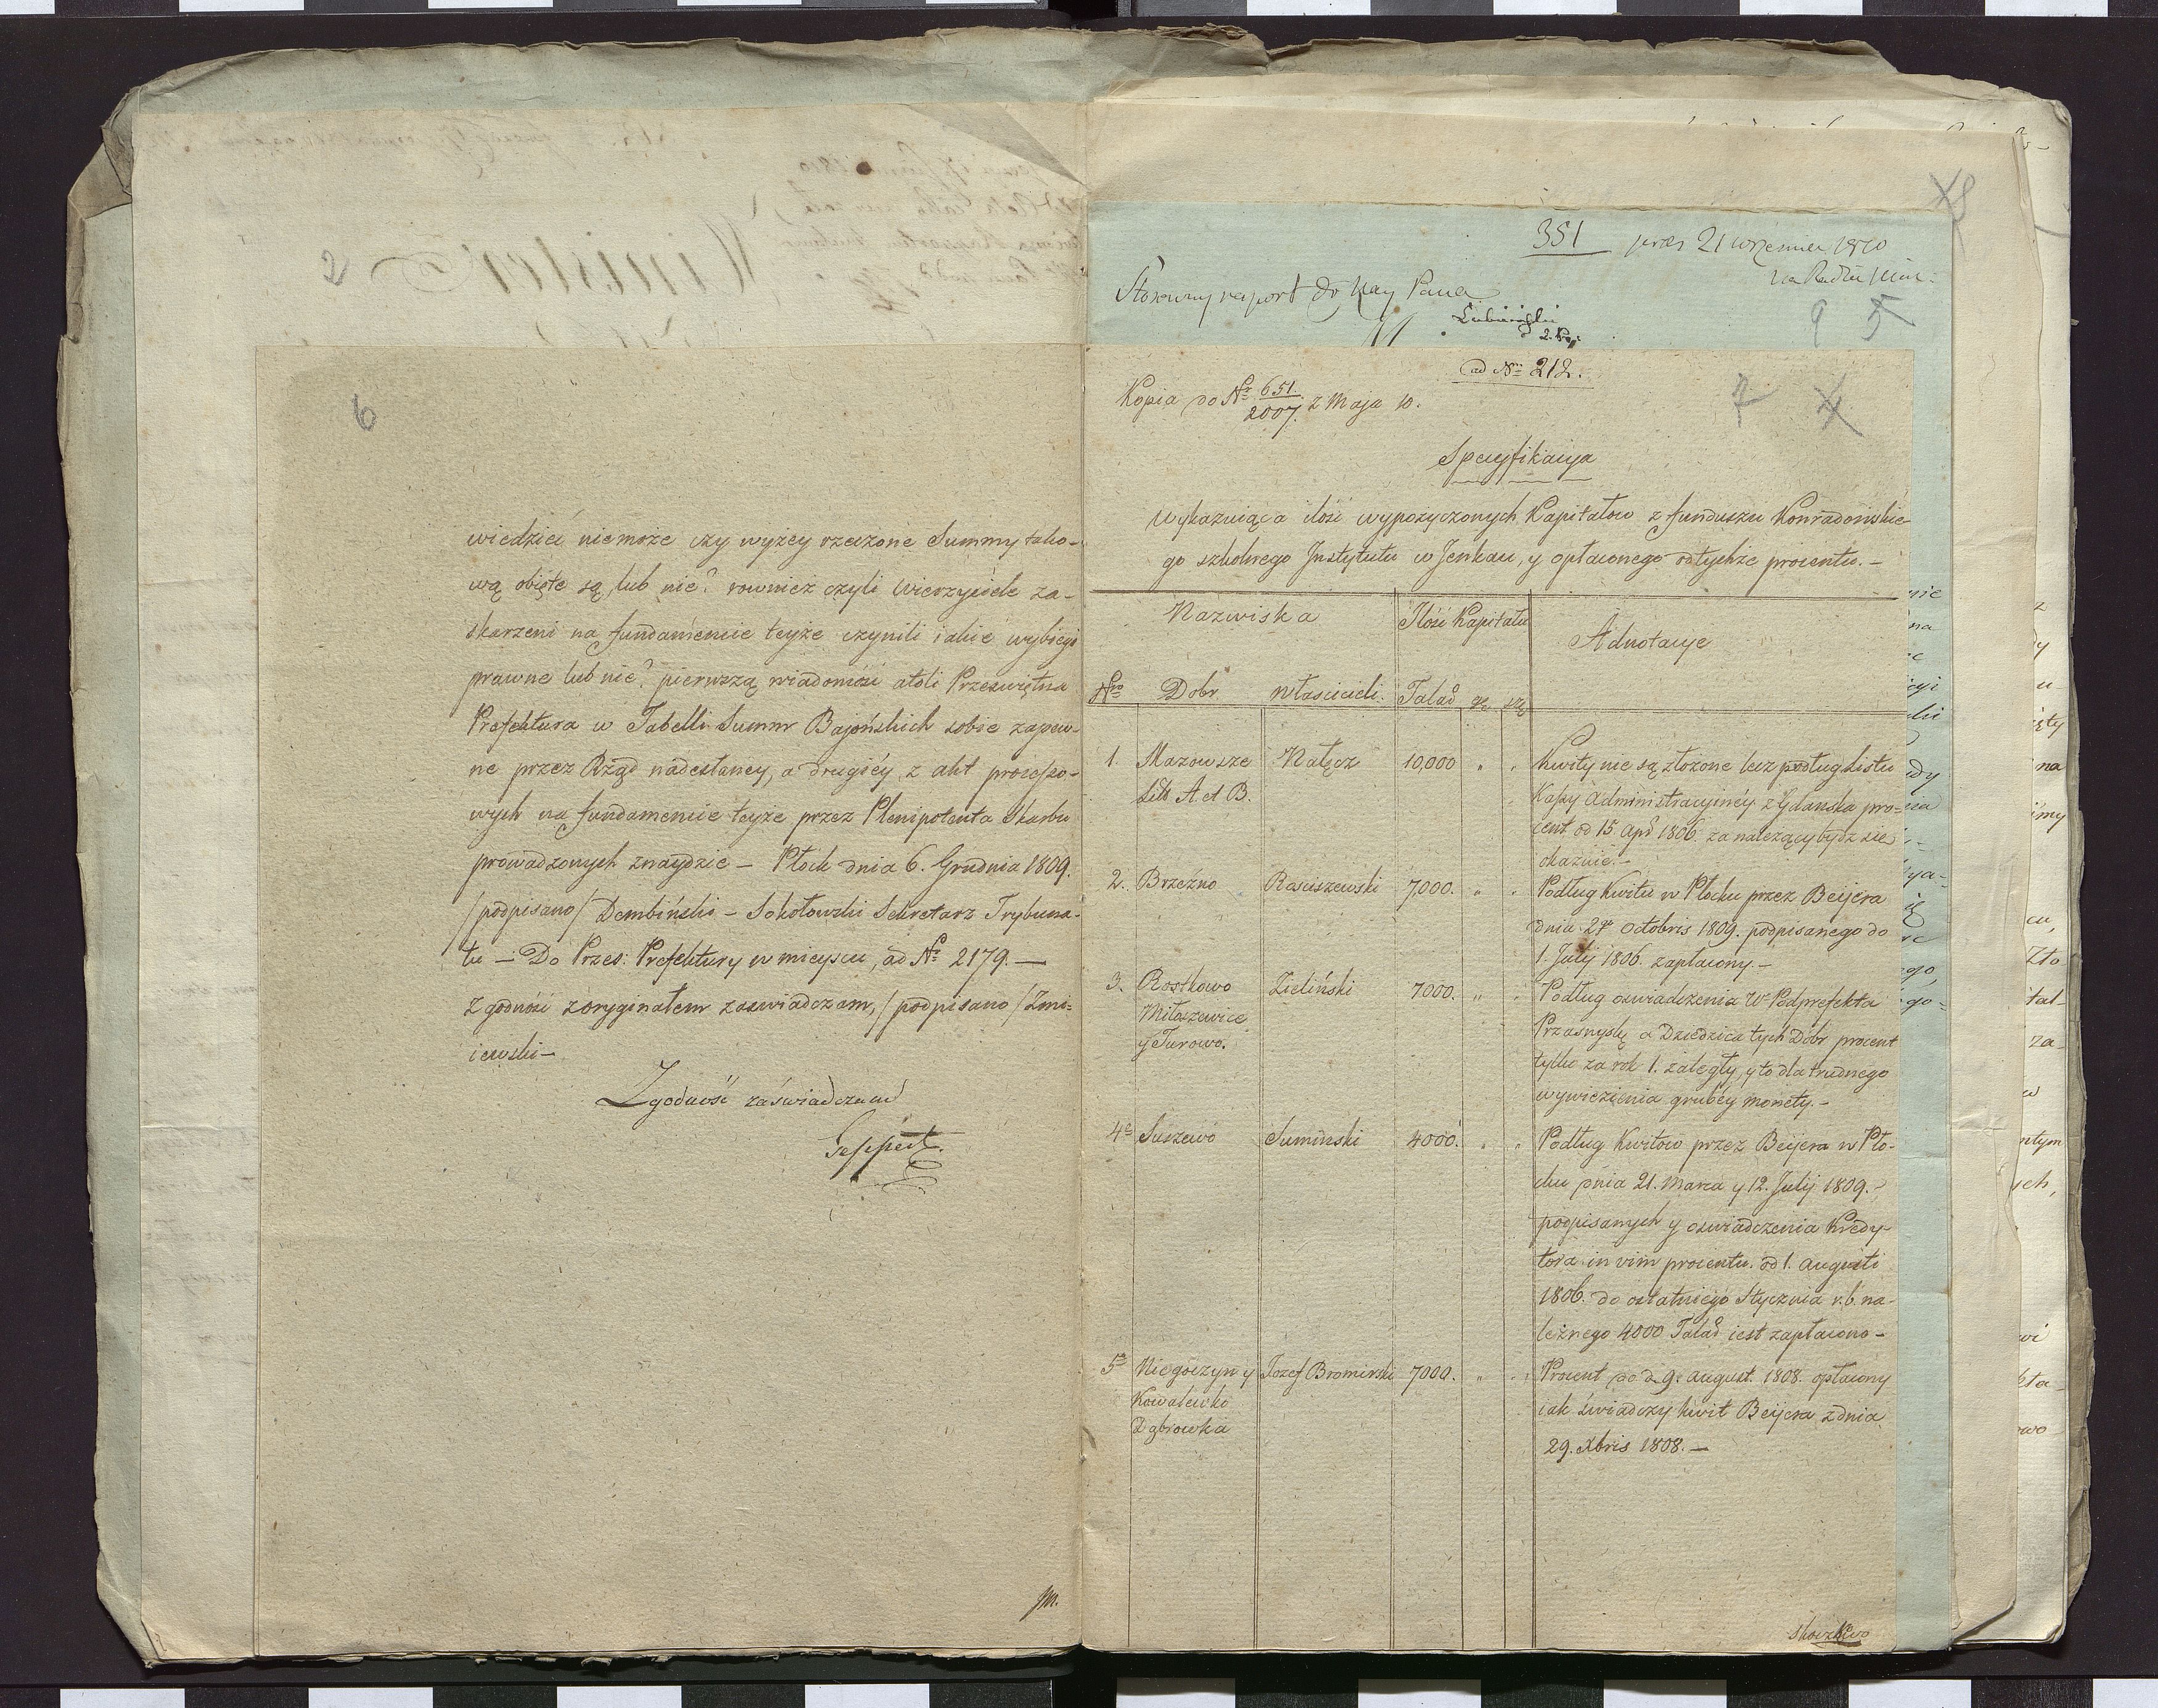 6
wiedzieć niemoże czy wyżey rzeczone Summy tako-
wą obięte są lub nie? rownież czyli Wierzyciele za-
skarzeni na fundamencie teyże czynili iakie wybiegi
prawne lub nie? pierwszą wiadomość atoli Prześwietna
Prefektura w Tabelli Summ Bajońskich sobie zapew-
ne przez Rząd nadesłaney, a drugiéy z akt processo-
wych na fundamencie teyże przez Plenipotenta Skarbu
prowadzonych znaydzie – Płock dnia 6. Grudnia 1809.
/podpisano/ Dembiński – Sokołowski Sekretarz Trybuna-
łu – Do Przes: Prefektury w mieyscu, ad Nr 2179. –
Zgodność z oryginałem zaswiadczam, /podpisano/ Zmi-
iewski –
Zgodność zaświadczam
Geppert.
351 pres 21 Września 1810
Stosowny raport do Nay Pana
Łubieński
9 5
ad Nrm 212.
Kopia do Nr 651/2007. z Maja 10.
7 4
Specyfikacya
Wykazuiąca ilość wypożyczonych Kapitałow z funduszu Konradowskie-
go szkolnego Instytutu w Jenkau, y opłaconego od tychże procentu. –
Nazwiska Ilość Kapitału Adnotacye
Nro Dobr Właścicieli Talar gr
1. Mazowsze Nałęcz 10,000 " " Kwity nie są złożone lecz podług Listu
Litt A et B. Kassy Administracyinéy z Gdanska pro-
cent od 15 Apr 1806. za należący bydz sie
okazuie. –
2. Brzeźno Rasciszewski 7000. " " Podług Kwitu w Płocku przez Beijera
dnia 27 Octobris 1809. podpisanego do
1. Julij 1806. zapłacony. –
3. Rostkowo Zieliński 7000. " " Podług oswiadczenia W Podprefekta
Miłoszewice Przasnyskę a Dziedzica tych Dobr procent
y Turowo. tylko za rok 1. zaległy, y to dla trudnego
wywiezienia grubéy monety. –
4. Suszewo Sumiński 4000. " " Podług Kwitow przez Beijera w Pło-
cku dnia 21. Marca y 12. Julij 1809.
podpisanych y oswiadczenia Kredy-
tora in vim procentu od 1. Augusti
1806. do ostatniego Stycznia r. b. na-
leżnego 4000 Talar iest zapłacono –
5. Niegoczyn y Jozef Bromirski 7000. " " Procent do d. 9. August. 1808. opłacony
Kowalewko iak świadczy kwit Beijera z dnia
Dąbrowka 29. Xbris 1808. –